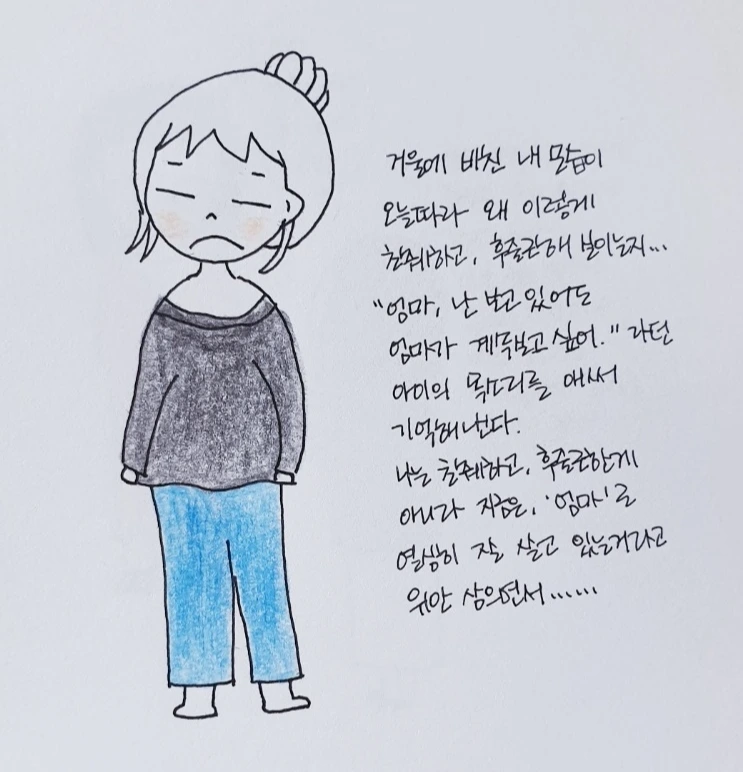 거울에 비친 내 모습이
오늘따라 왜 이렇게
초췌하고, 후줄근해 보이는지...
"엄마, 난 보고 있어도
엄마가 계속보고 싶어." 라던
아이의 목소리를 애써
기억해낸다.
나는 초췌하고, 후줄근한게
아니라 지금은, '엄마'로
열심히 잘 살고 있는거라고
위안 삼으면서......